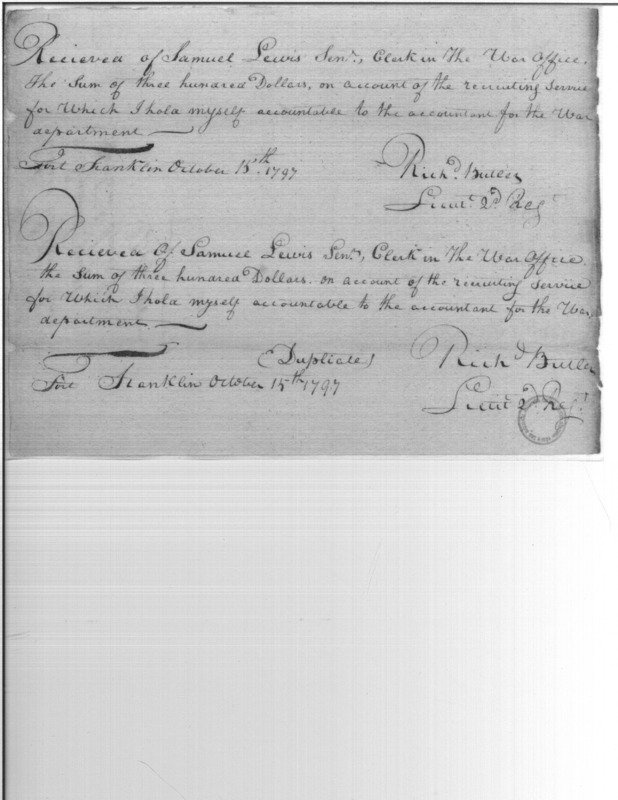 Recieved of Samuel Lewis Senr., Clerk in The War Office.
The Sum of three hundred Dollars, on account of the recruiting Service
for Which I hold myself accountable to the accountant for the War
department
Fort Franklin October 15th. 1797
Richd. Butler
Lieut 2d. Regt
Recieved Of Samuel Lewis Senr., Clerk in The War Office.
the Sum of three hundred Dollars. on account of the recruiting Service
for Which I hold myself accountable to the accountant for the War,
department
(Duplicate)
Fort Franklin October 15th 1797
Richd Butler
Lieut 2d. Regt